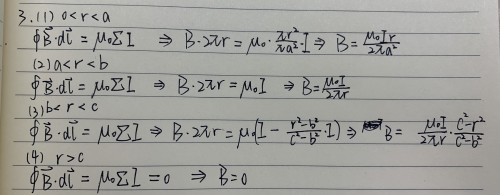 3. (1) 0<r<a
∮B⃗·dl⃗ = μ₀ΣI ⇒ B·2πr = μ₀·πr²/πa²·I ⇒ B = μ₀Ir/2πa²
(2) a<r<b
∮B⃗·dl⃗ = μ₀ΣI ⇒ B·2πr = μ₀I ⇒ B = μ₀I/2πr
(3) b<r<c
∮B⃗·dl⃗ = μ₀ΣI ⇒ B·2πr = μ₀(I - r²-b²/c²-b²·I) ⇒ B = μ₀I/2πr·c²-r²/c²-b²
(4) r>c
∮B⃗·dl⃗ = μ₀ΣI = 0 ⇒ B=0